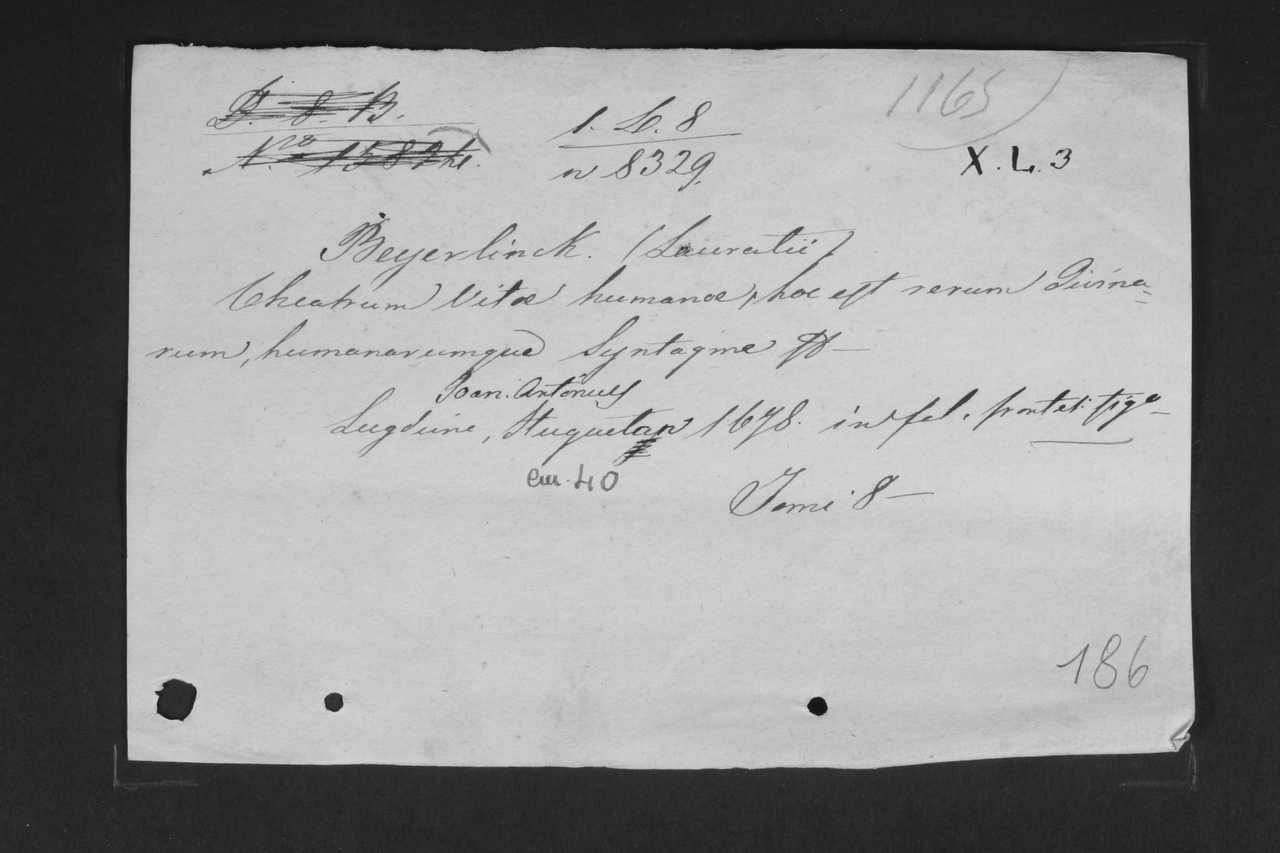 D. 8. B.
1. L. 8
1165
N.ro 1582
n 8329.
X. L. 3
Beyerlinck. (Lauratii)
Theatrum Vitæ humanæ, hoc est rerum Divina=
rum, humanarumque Syntagma
Joan. Antonius
Lugduni, Huguetan 1678. in fol. frontet. figu
cm. 40
Tomi 8 —
186